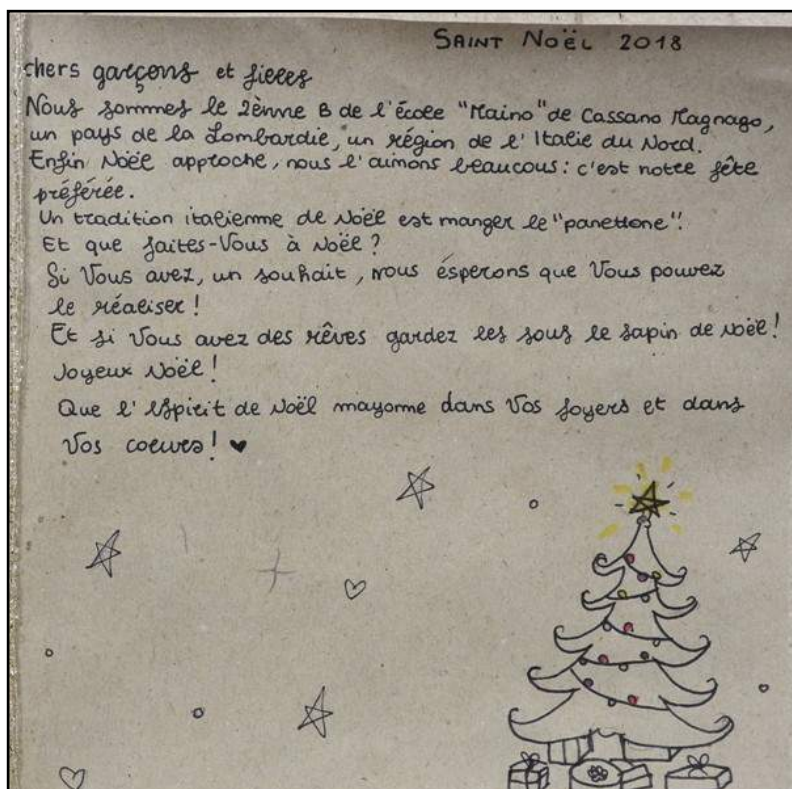 SAINT NOËL 2018
chers garçons et filles
Nous sommes le 2ènne B de l'école "Maino" de Cassano Magnago,
un pays de la Lombardie, un région de l'Italie du Nord.
Enfin Noël approche, nous l'aimons beaucous: c'est notre fête
préférée.
Un tradition italienne de Noël est manger le "panettone".
Et que faites-Vous à Noël?
Si Vous avez, un souhait, nous ésperons que Vous pouvez
le réaliser!
Et si Vous avez des rêves gardez les sous le sapin de Noël!
Joyeux Noël!
Que l'Espirit de Noël mayorme dans Vos foyers et dans
Vos coeurs! ♥